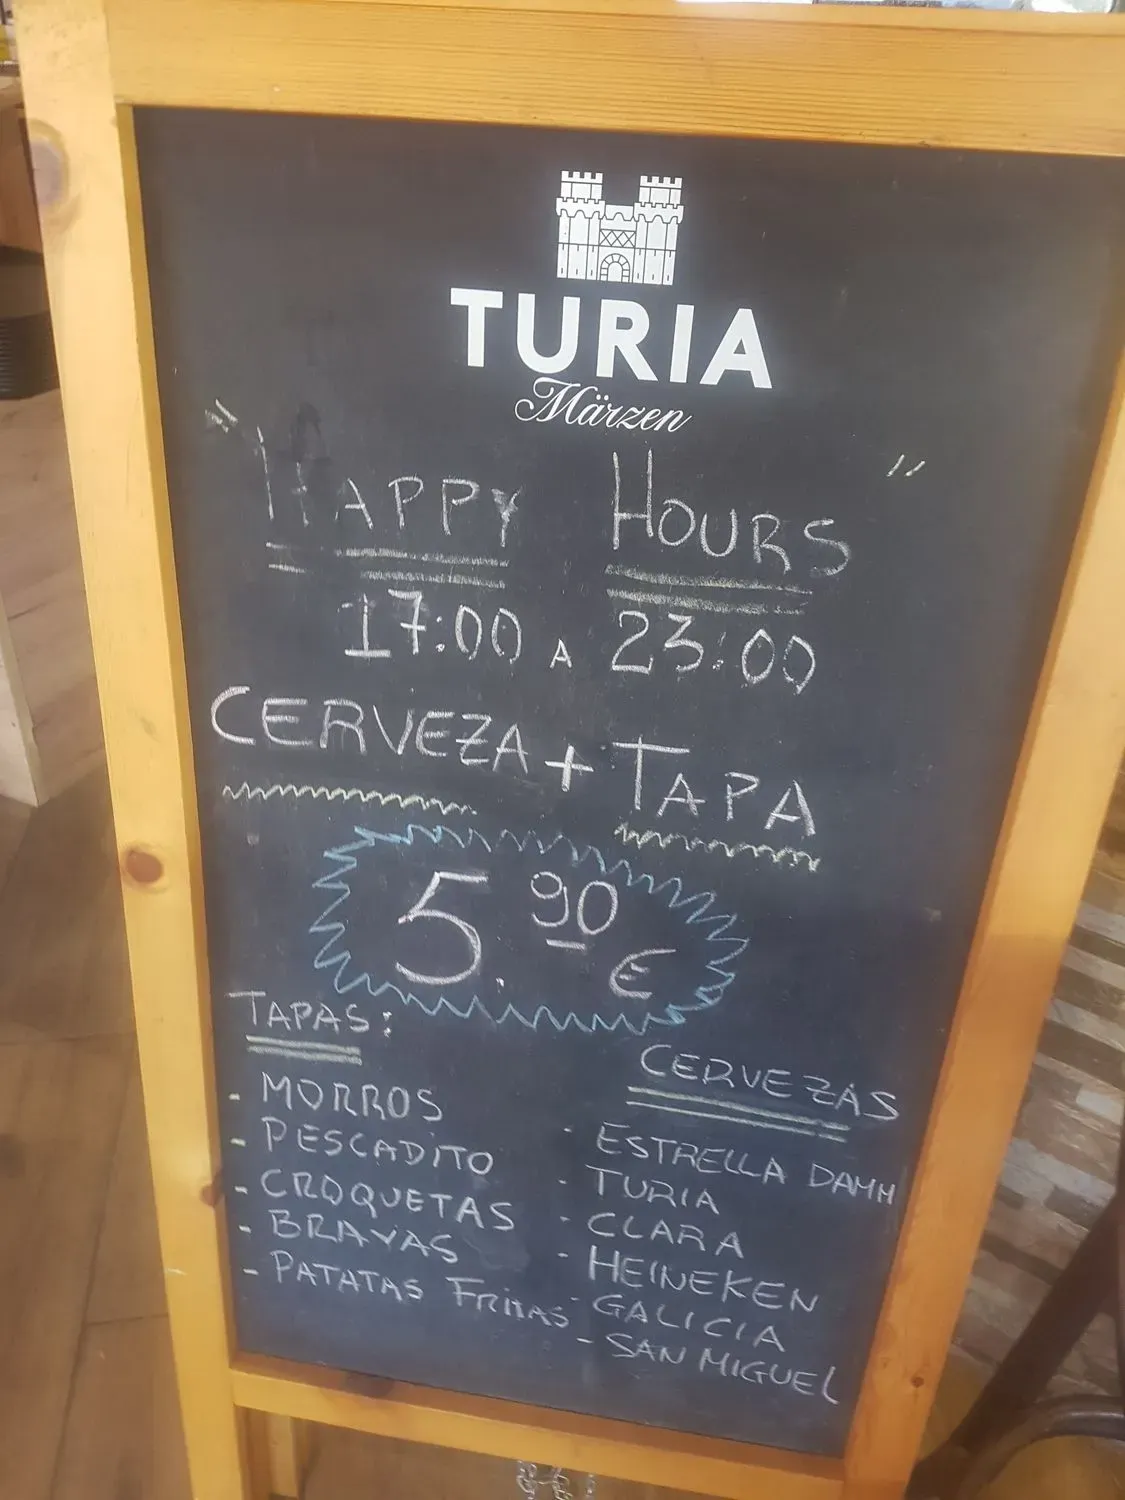 TURIA
Märzen
" HAPPY HOURS "
17:00 A 23:00
CERVEZA + TAPA
5.90 €
TAPAS:
- MORROS
- PESCADITO
- CROQUETAS
- BRAVAS
- PATATAS FRITAS
CERVEZAS
- ESTRELLA DAMM
- TURIA
- CLARA
- HEINEKEN
- GALICIA
- SAN MIGUEL